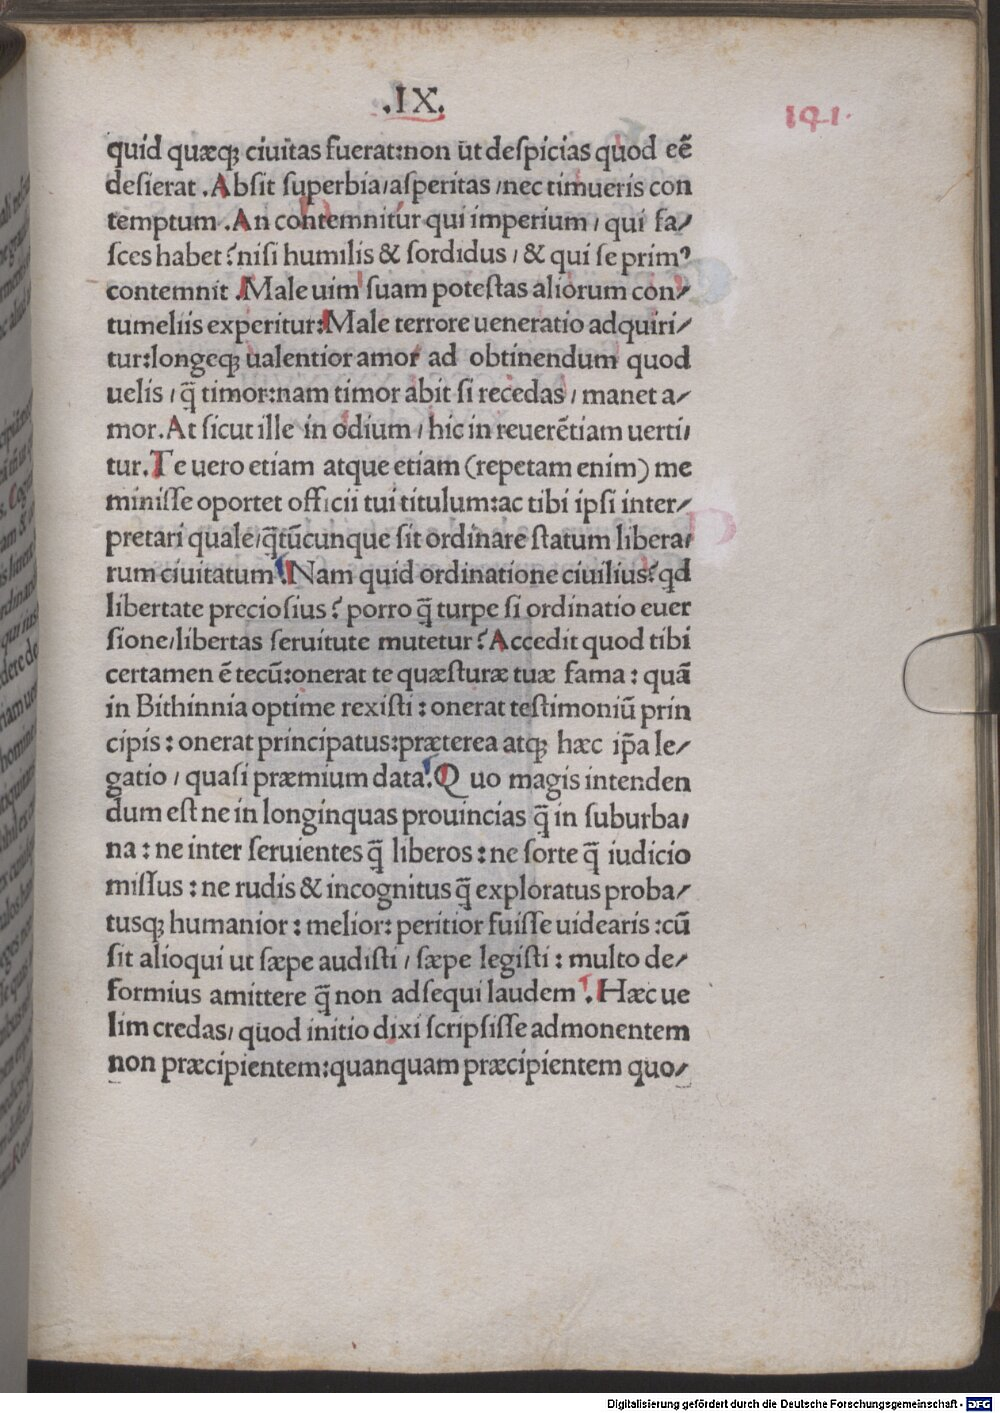 .IX.
191.
quid quæq; ciuitas fuerat:non ut deſpicias quod eẽ
deſierat .Abſit ſuperbia/aſperitas /nec timueris con
temptum .An contemnitur qui imperium / qui fa/
ſces habet ? niſi humilis & ſordidus / & qui ſe primꝰ
contemnit .Male uim ſuam poteſtas aliorum con/
tumeliis experitur:Male terrore ueneratio adquiri/
tur:longeq; ualentior amor ad obtinendum quod
uelis / q̃ timor:nam timor abit ſi recedas / manet a/
mor.At ſicut ille in odium / hic in reuerẽtiam uerti/
tur.Te uero etiam atque etiam (repetam enim) me
miniſſe oportet officii tui titulum:ac tibi ipſi inter/
pretari quale/q̃tũcunque ſit ordinare ſtatum libera/
rum ciuitatum .Nam quid ordinatione ciuilius? qd
libertate precioſius ? porro q̃ turpe ſi ordinatio euer
ſione/libertas ſeruitute mutetur ? Accedit quod tibi
certamen ẽ tecũ:onerat te quæſturæ tuæ fama : quã
in Bithinnia optime rexiſti : onerat teſtimoniũ prin
cipis : onerat principatus:præterea atq; hæc ip̃a le/
gatio / quaſi præmium data .Q uo magis intenden
dum eſt ne in longinquas prouincias q̃ in ſuburba/
na : ne inter ſeruientes q̃ liberos : ne ſorte q̃ iudicio
miſſus : ne rudis & incognitus q̃ exploratus proba/
tusq; humanior : melior: peritior fuiſſe uidearis :cũ
ſit alioqui ut ſæpe audiſti / ſæpe legiſti : multo de/
formius amittere q̃ non adſequi laudem . Hæc ue
lim credas/ quod initio dixi ſcripſiſſe admonentem
non præcipientem:quanquam præcipientem quo/
Digitalisierung gefördert durch die Deutsche Forschungsgemeinschaft - DFG